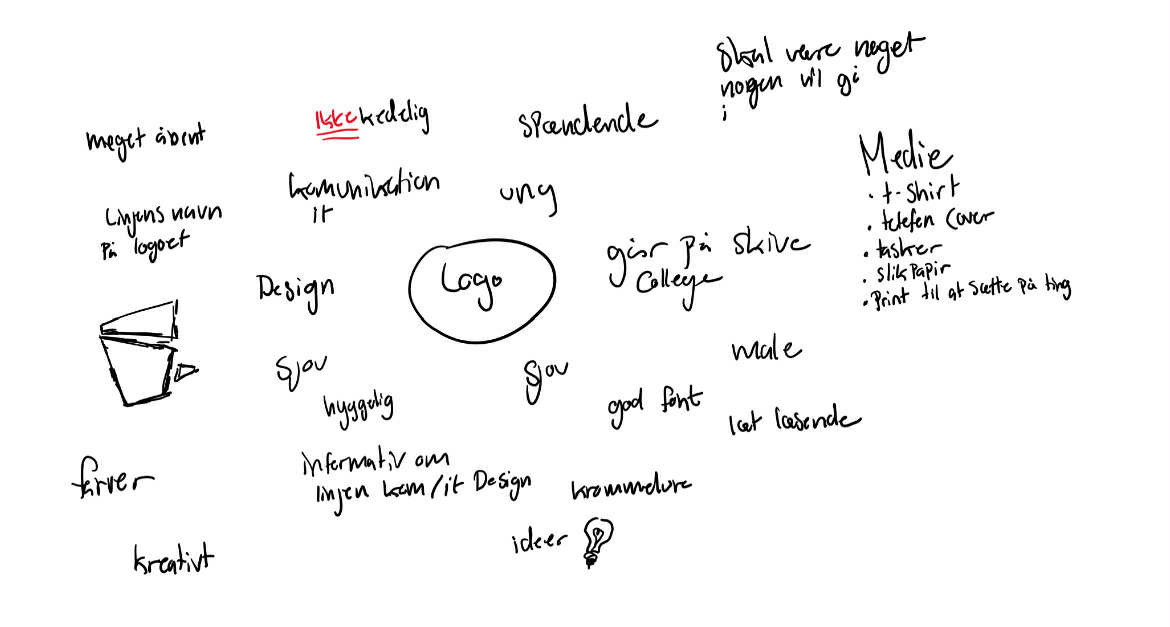 Skal være noget
nogen vil gå
i
Ikke kedelig
spændende
meget åbent
Medie
• t-shirt
• telefon cover
• tasker
• slik papir
• Print til at sætte på ting
komunikation
it
ung
Linjens navn
på logoet
går på skive
College
Design
Logo
male
sjov
sjov
hyggelig
god font
læt læsende
informativ om
linjen kom/it Design
farver
ideer
kreativt